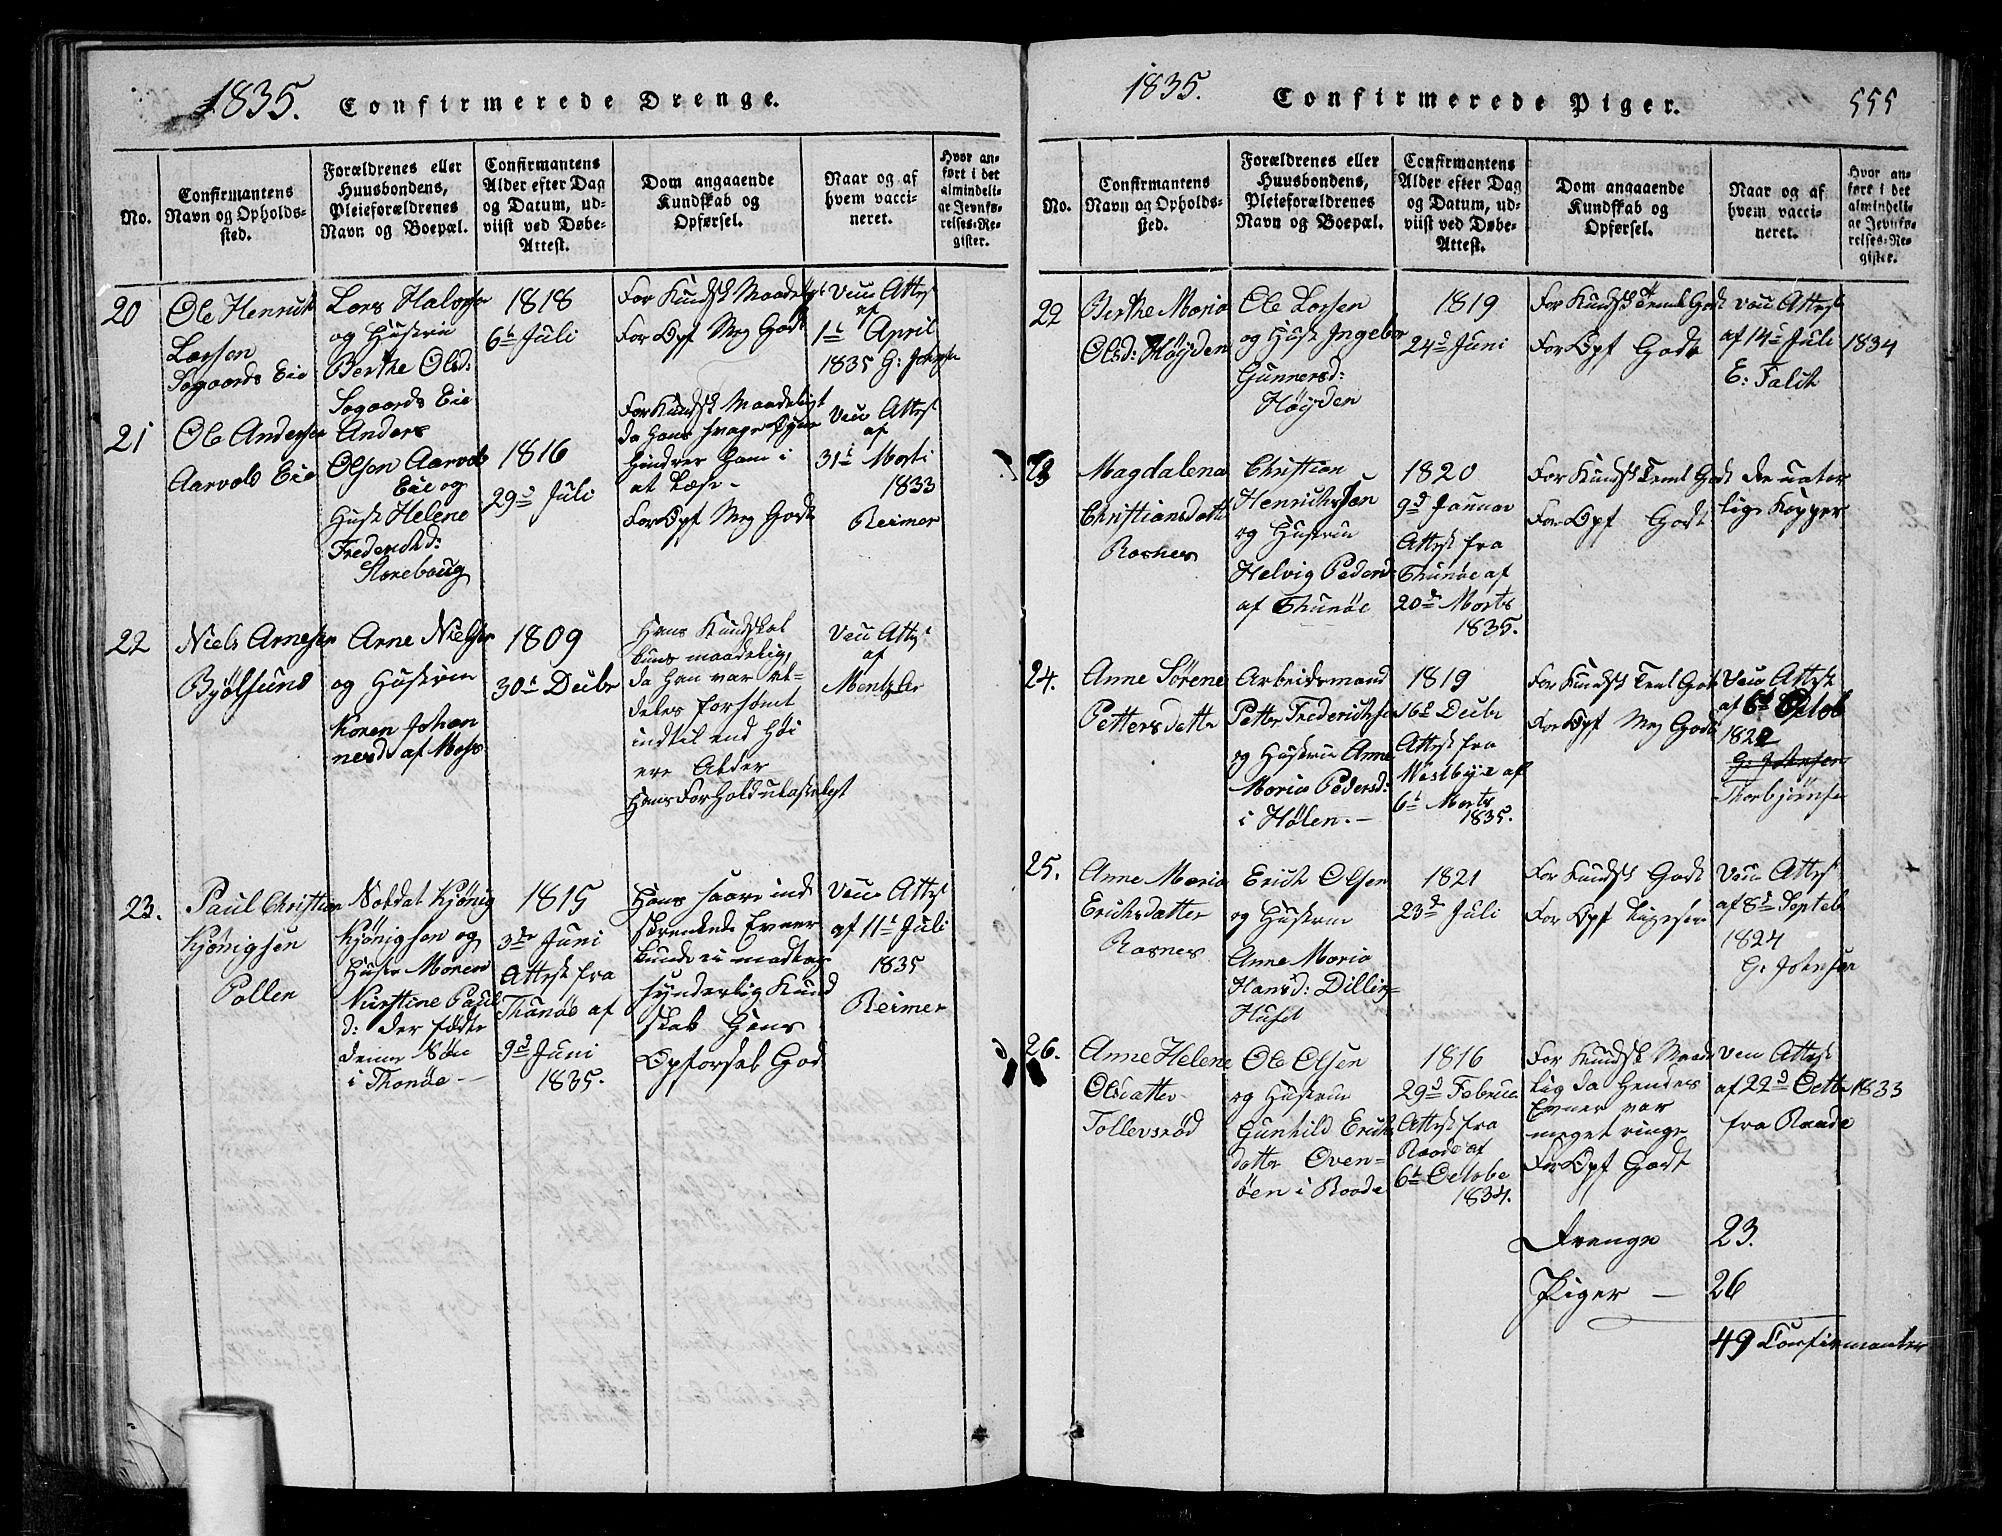 1835. Confirmerede Drenge.
No.
Confirmantens
Navn og Opholds-
sted.
Forældrenes eller
Huusbondens,
Pleieforældrenes
Navn og Boepæl.
Confirmantens
Alder efter Dag
og Datum, ud-
viist ved Døbe-
Attest.
Dom angaaende
Kundskab og
Opførsel.
Naar og af
hvem vacci-
neret.
Hvor an-
ført i det
almindeli-
ge Jevnfø-
relses-Re-
gister.
20
Ole Henrich
Larsen
Sogaards Eie
Lars Halvors
og Hustrue
Berthe Olsd:
Sogaards Eie
1818
6te Juli
For Kundsk Maadeligt
For Opf Meg Godt
Veu Attest
af
1te April
1835 G: Johnsen
21
Ole Andersen
Aarvold Eie
Anders
Olsen Aarvold
Eie og
Hust Helene
Frederichd:
Storebaug
1816
29d Juli
For Kundsk Maadeligt
da hans svage Syn
hindrer ham i
at Læse -
For Opf Meg Godt
Veu Attest
af
31te Marti
1833
Reimer
22
Niels Arnesen
Bjølsund
Arne Nielsen
og Hustrue
Karen Johan
nesd af Moss
1809
30te Decbr
Hans Kundskab
kuns maadelig,
da han var al-
deles forsømt
indtil end høi
ere Alder
Hans Forhold ulasteligt
Veu Attest
af
Mentzler
23.
Paul Christian
Kjønigsen
Pollen
Soldat Kjønig
Kjønigsen og
Huse Maren
Kirstine Paul
d: der fødte
denne Søn
i Thonøe -
1815
3die Juni
Attest fra
Thonøe af
9d Juni
1835.
Hans saare ind
skrenkede Evner
kunde ei modtag
synderlig Kund
skab Hans
Opførsel God
Veu Attest
af 11te Juli
1835
Reimer
1835. Confirmerede Piger. 555
No.
Confirmantens
Navn og Opholds-
sted.
Forældrenes eller
Huusbondens,
Pleieforældrenes
Navn og Boepæl.
Confirmantens
Alder efter Dag
og Datum, ud-
viist ved Døbe-
Attest.
Dom angaaende
Kundskab og
Opførsel.
Naar og af
hvem vacci-
neret.
Hvor an-
ført i det
almindeli-
ge Jevnfø-
relses-Re-
gister.
22
Berthe Maria
Olsd: Høyden
Ole Larsen
og Hust Ingebor
Gunnersd:
Høyden
1819
24d Juni
For Kundsk Teml Godt
For Opf Godt
Veu Attest
af 14te Juli 1834
E: Falck
23
Magdalena
Christiansdatt
Rosnes
Christian
Henrichsen
og Hustrue
Helvig Pedersd
af Thunøe
1820
9d Januar
Attest fra
Thunøe af
20d Marts
1835.
For Kundsk Teml Godt
For Opf Godt
De natur
lige Kopper
24.
Anne Sørene
Pettersdatte
Arbeidsmand
Petter Frederichsen
og Hustrue Anne
Maria Pedersd:
i Hølen. -
1819
16d Decbr
Attest fra
Westbye af
6te Marts
1835.
For Kundsk Teml Godt
For Opf Meg Godt
Veu Attest
af 6te Octob
182
G: Johnsen
Thorbjørnsen
25.
Anne Maria
Erichsdatter
Rosnes
Erich Olsen
og Hustrue
Anne Maria
Hansd: Dilling-
Huset
1821
23d Juli
For Kundsk Godt
For Opf Ligesaa
Veu Attest
af 8d Septeb
1824
G: Johnsen
26.
Anne Helene
Olsdatter
Tollevsrød
Ole Olsen
og Hustrue
Gunhild Erichs
datter Oven-
øen i Raade
1816
29d Februa
Attest fra
Raade af
6te Octobe
1834.
For Kundsk Maade
lig da hendes
Evner var
meget ringe
For Opf Godt
Veu Attest
af 22d Octbr 1833
fra Raade
Drenge 23.
Piger - 26
49 Confirmanter